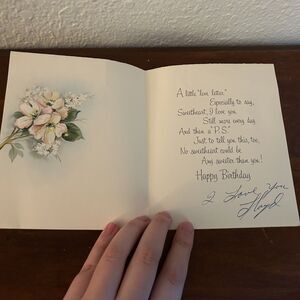 A little "love letter"
Especially to say,
Sweetheart, I love you
Still more every day
And then a "P.S."
Just to tell you this, too,
No sweetheart could be
Any sweeter than you!
Happy Birthday
I Love You
Floyd